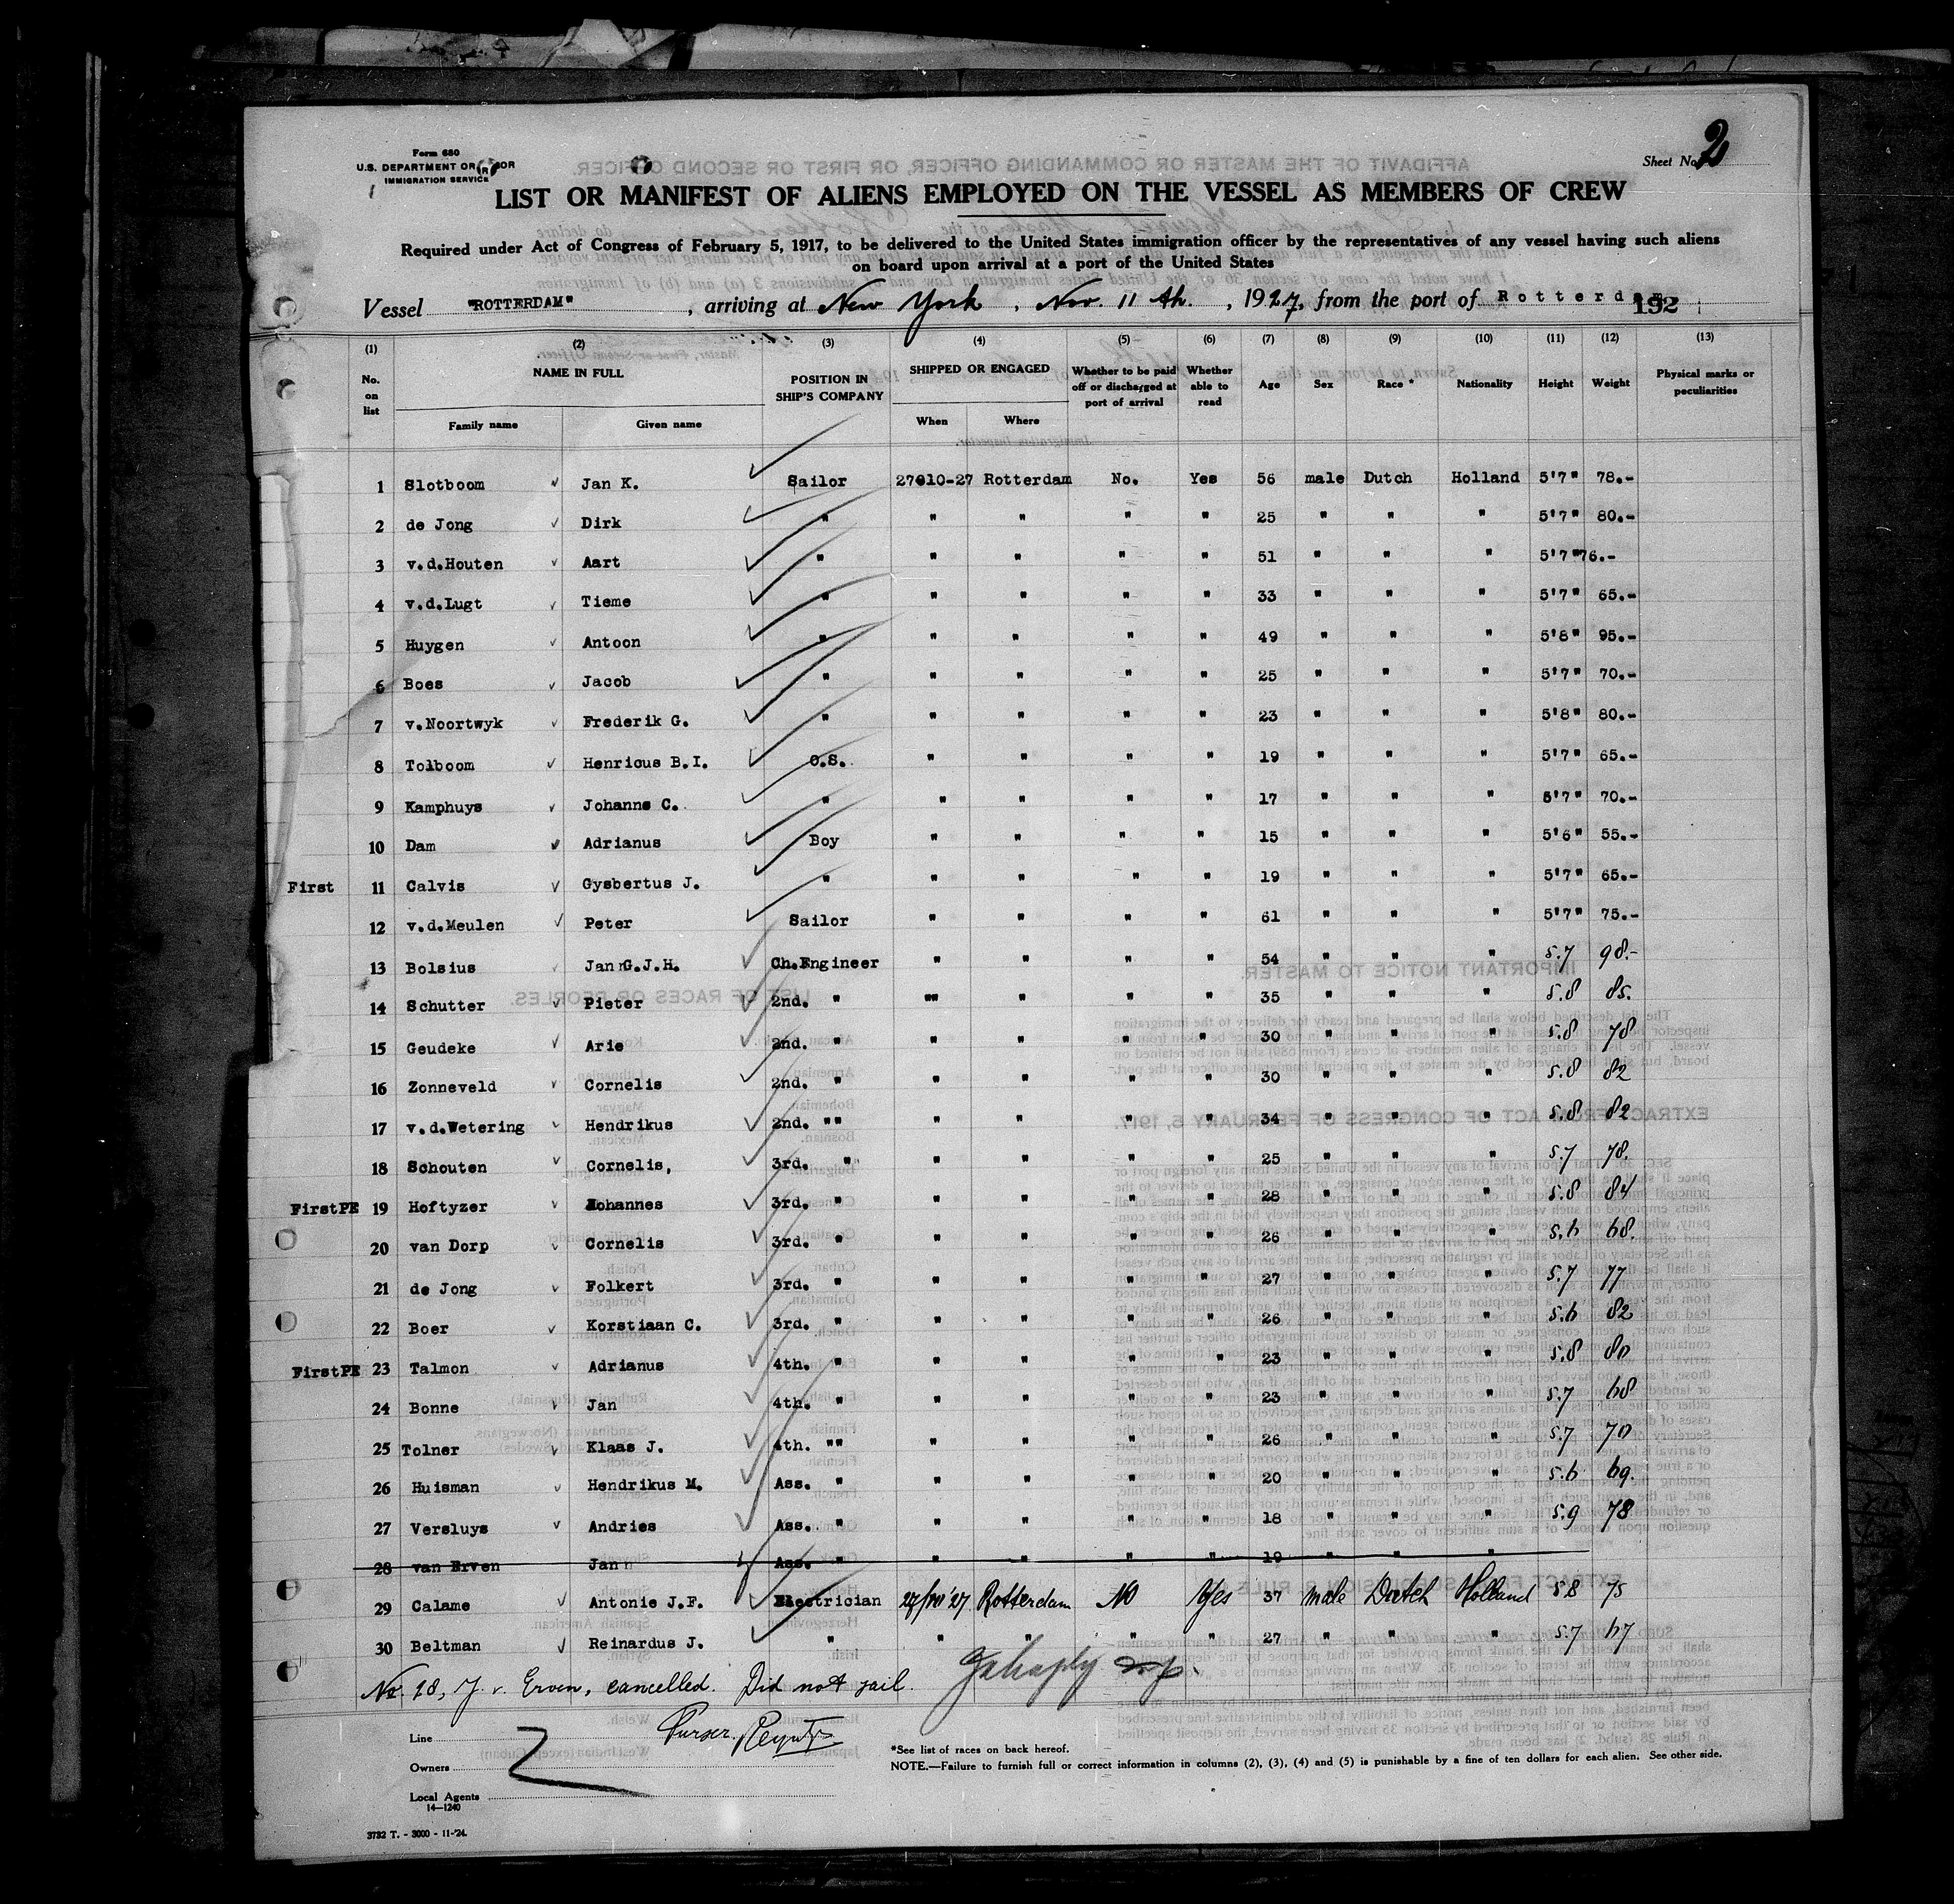 Form 680
U.S. DEPARTMENT OF LABOR
IMMIGRATION SERVICE
Sheet No. 2
LIST OR MANIFEST OF ALIENS EMPLOYED ON THE VESSEL AS MEMBERS OF CREW
Required under Act of Congress of February 5, 1917, to be delivered to the United States immigration officer by the representatives of any vessel having such aliens
on board upon arrival at a port of the United States
Vessel "ROTTERDAM", arriving at New York, Nov. 11 th., 1927, from the port of Rotterdam 192
(1) (2) (3) (4) (5) (6) (7) (8) (9) (10) (11) (12) (13)
No. on list NAME IN FULL Family name Given name POSITION IN SHIP'S COMPANY SHIPPED OR ENGAGED When Where Whether to be paid off or discharged at port of arrival Whether able to read Age Sex Race * Nationality Height Weight Physical marks or peculiarities
1 Slotboom Jan K. Sailor 27010-27 Rotterdam No. Yes 56 male Dutch Holland 5'7" 78.-
2 de Jong Dirk " " " " " 25 " " " 5'7" 80.-
3 v.d.Houten Aart " " " " " 51 " " " 5'7" 76.-
4 v.d.Lugt Tieme " " " " " 33 " " " 5'7" 65.-
5 Huygen Antoon " " " " " 49 " " " 5'8" 95.-
6 Boes Jacob " " " " " 25 " " " 5'7" 70.-
7 v.Noortwyk Frederik G. " " " " " 23 " " " 5'8" 80.-
8 Tolboom Henricus B.I. O.S. " " " " 19 " " " 5'7" 65.-
9 Kamphuys Johanns C. " " " " " 17 " " " 5'7" 70.-
10 Dam Adrianus Boy " " " " 15 " " " 5'6" 55.-
First 11 Calvis Gysbertus J. " " " " " 19 " " " 5'7" 65.-
12 v.d.Meulen Peter Sailor " " " " 61 " " " 5'7" 75.-
13 Bolsius Jan G.J.H. Ch.Engineer " " " " 54 " " " 5.7 98.-
14 Schutter Pieter 2nd. " "" " " " 35 " " " 5.8 85.
15 Geudeke Arie 2nd. " " " " " 30 " " " 5.8 78
16 Zonneveld Cornelis 2nd. " " " " " 30 " " " 5.8 82
17 v.d.Wetering Hendrikus 2nd. "" " " " " 34 " " " 5.8 82
18 Schouten Cornelis, 3rd. " " " " " 25 " " " 5.7 78.
FirstPE 19 Hoftyzer Johannes 3rd. " " " " " 28 " " " 5.8 84
20 van Dorp Cornelis 3rd. " " " " " 26 " " " 5.6 68.
21 de Jong Folkert 3rd. " " " " " 27 " " " 5.7 77
22 Boer Korstiaan C. 3rd. " " " " " 26 " " " 5.6 82
FirstPE 23 Talmon Adrianus 4th. " " " " " 23 " " " 5.8 80
24 Bonne Jan 4th. " " " " " 23 " " " 5.7 68
25 Tolner Klaas J. 4th. "" " " " " 26 " " " 5.7 70
26 Huisman Hendrikus M. Ass. " " " " " 20 " " " 5.6 69.
27 Versluys Andries Ass. " " " " " 18 " " " 5.9 78
28 van Erven Jan Ass. " " " " " 19 " " "
29 Calame Antonie J.F. Electrician 27/10'27 Rotterdam No Yes 37 male Dutch Holland 5.8 75
30 Beltman Reinardus J. " " " " " 27 " " " 5.7 67
No. 28, J. v. Erven, cancelled. Did not sail.
Purser.
Line
Owners
Local Agents
14—1240
*See list of races on back hereof.
NOTE.—Failure to furnish full or correct information in columns (2), (3), (4) and (5) is punishable by a fine of ten dollars for each alien. See other side.
3732 T. - 3000 - 11-'24.